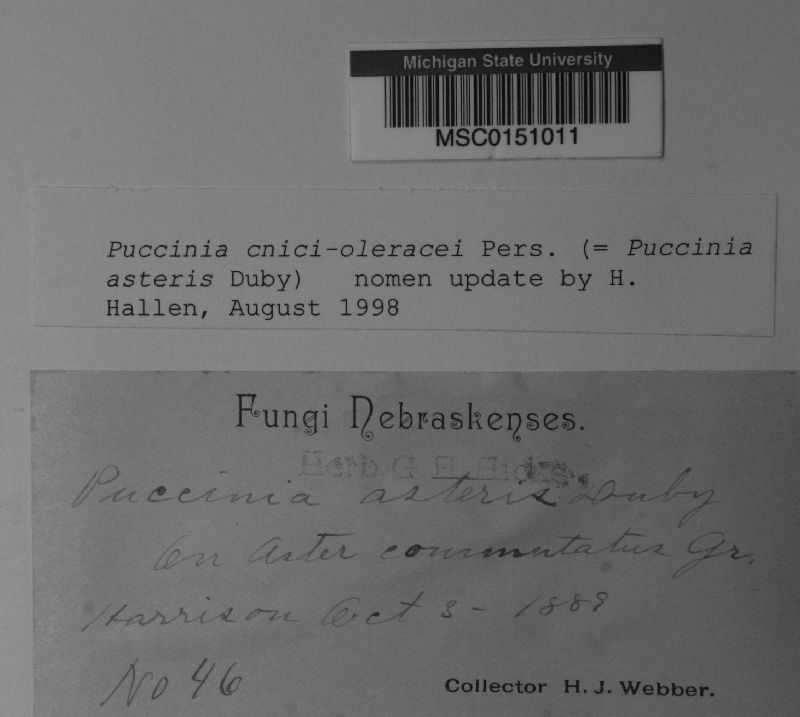 Michigan State University
MSC0151011
Puccinia cnici-oleracei Pers. (= Puccinia
asteris Duby) nomen update by H.
Hallen, August 1998
Fungi Nebraskenses.
Herb. G. H. Hicks.
Puccinia asteris Duby
On Aster commutatus Gr.
Harrison Oct 3 - 1889
No 46
Collector H. J. Webber.